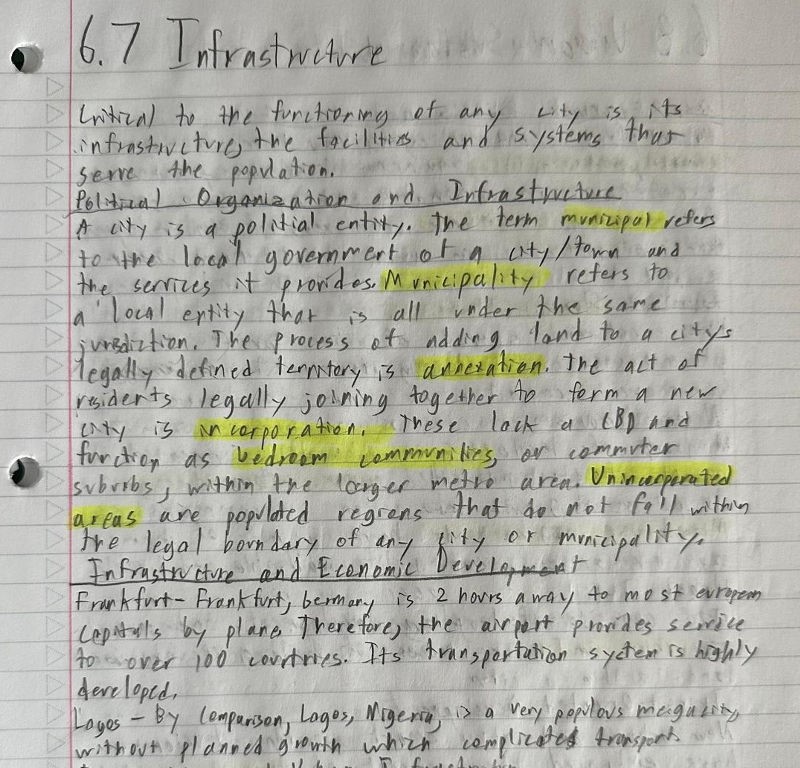 6.7 Infrastructure
Critical to the functioning of any city is its
infrastructure, the facilities and systems that
serve the population.
Political Organization and Infrastructure
A city is a politial entity. The term municipal refers
to the local government of a city/town and
the services it provides. Municipality refers to
a local entity that is all under the same
jurisdiction. The process of adding land to a citys
legally defined territory is annexation. The act of
residents legally joining together to form a new
city is incorporation. These lack a CBD and
function as bedroom communities, or commuter
suburbs, within the larger metro area. Unincorporated
areas are populated regions that do not fall within
the legal boundary of any city or municipality.
Infrastructure and Economic Development
Frankfurt- Frankfurt, Germany is 2 hours away to most european
capitals by plane. Therefore, the airport provides service
to over 100 countries. Its transportation system is highly
developed.
Lagos - By comparison, Lagos, Nigeria, is a very populous megacity
without planned growth which complicated transport